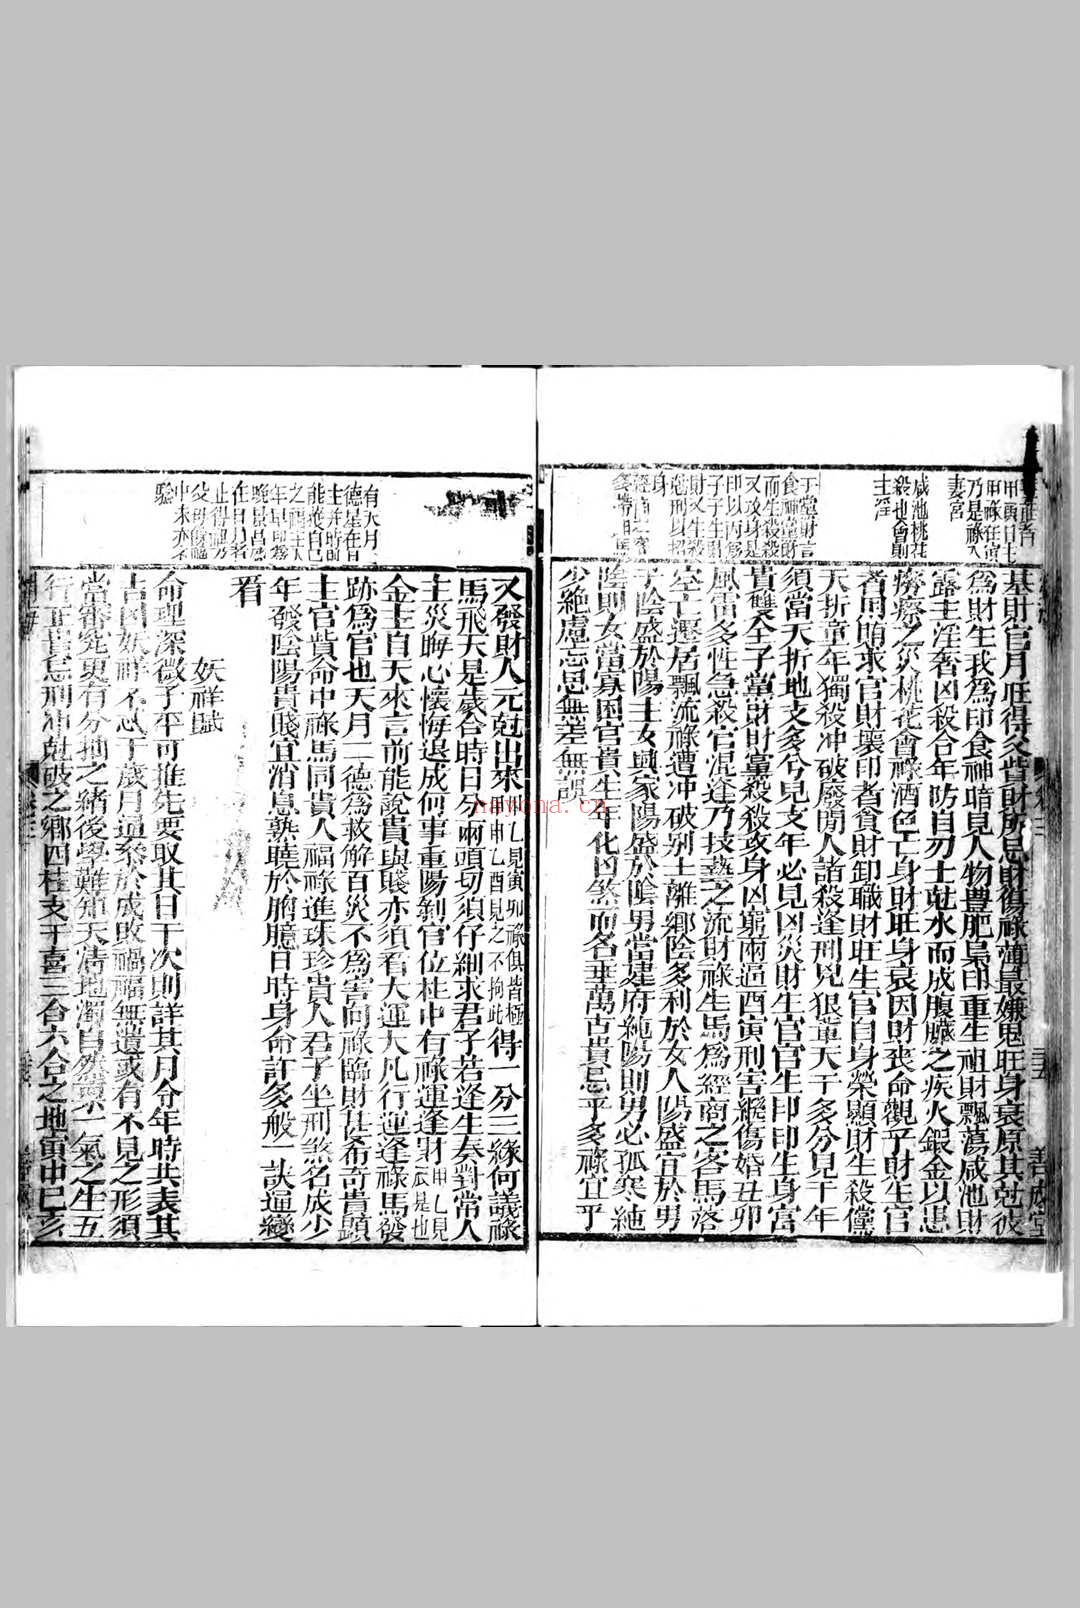 甲寅日生
甲祿在寅
乃是祿入
妻宮
咸池桃花
殺也會則
主淫
干黨財言
食神黨財
而生殺殺
又攻身是
印以丙為
子子生財
財又生殺
尅刑以招
身
基財官月旺得父貲財所忌財傷祿薄最嫌鬼旺身衰原其尅彼
為財生我為印食神暗見人物豊肥梟印重生祖財飄蕩咸池財
露主淫奢凶殺合年防自刃土尅水而成腹臟之疾火鍛金以患
癆瘵之災桃花會祿酒色亡身財旺身衰因財喪命觀乎財生官
者用賄求官財壞印者貪財卸職財旺生官自身榮顯財生殺黨
夭折童年獨殺冲破廢閒人諸殺逢刑兇狠輩天干多分見干年
須當夭折地支多兮見支年必見凶災財生官官生印印生身富
貴雙全子黨財財黨殺殺攻身凶窮兩逼酉寅刑害緃傷婚丑卯
風雷多性急殺官混逢乃技藝之流財祿生馬為經商之客馬落
空亡遷居飄流祿遭冲破別土離鄉陰多利於女人陽盛宜於男
子陰盛於陽主女興家陽盛於陰男當建府純陽則男必孤寒純
陰則女當寡困官貴生年化凶煞而名垂萬古貴忌乎多祿宜乎
少絶慮忘思無差無誤
善成堂
有天月二
德星在日
主并時的
能獲自己
之
年早印為
晚景昌盛
在日月者
止得
父母傷
中未亦不
驗
又發財人元尅出來甲乙見寅卯祿俱皆極甲申乙酉見之不拘此得一分三緣何議祿
馬飛天是歲合時日分兩頭切須仔細求君子若逢生奏對常人
主災晦心懷悔退成何事重陽剝官位柱中有祿運逢財甲乙見戊是也
金主自天來言前能說貴與賤亦須看大運大凡行運逢祿馬發
跡為官也天月二德為救解百災不為害向祿臨財甚希奇貴顯
主官貲命中祿馬同貴人福祿進珠珍貴人君子坐刑煞名成少
年發陰陽貴賤宜消息熟曉於膺臆日時身命許多般一訣逼變
看
妖祥賦
命理深微子平可推先要取其日干次則詳其月令年時共表其
吉凶妖祥不忒于歲月通祭於成敗禍福無遺或有不見之形須
當審究更有分抽之緒後學難知天清地濁自然稟一氣之生五
行正旺忌刑冲尅破之鄉四柱支干喜三合六合之地寅申巳亥